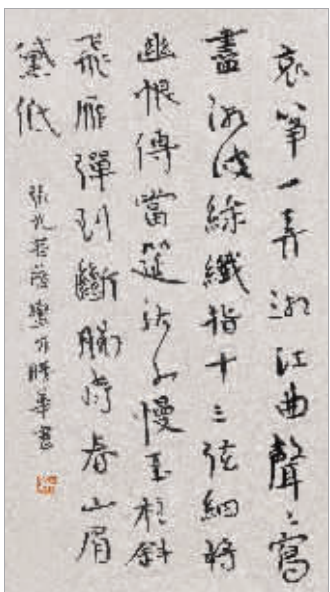 哀箏一弄湘江曲聲〻寫
盡湘波綠纖指十三弦細將
幽恨傳當筵秋水慢玉柱斜
飛雁彈到斷腸時春山眉
黛低
張先菩薩蠻 書